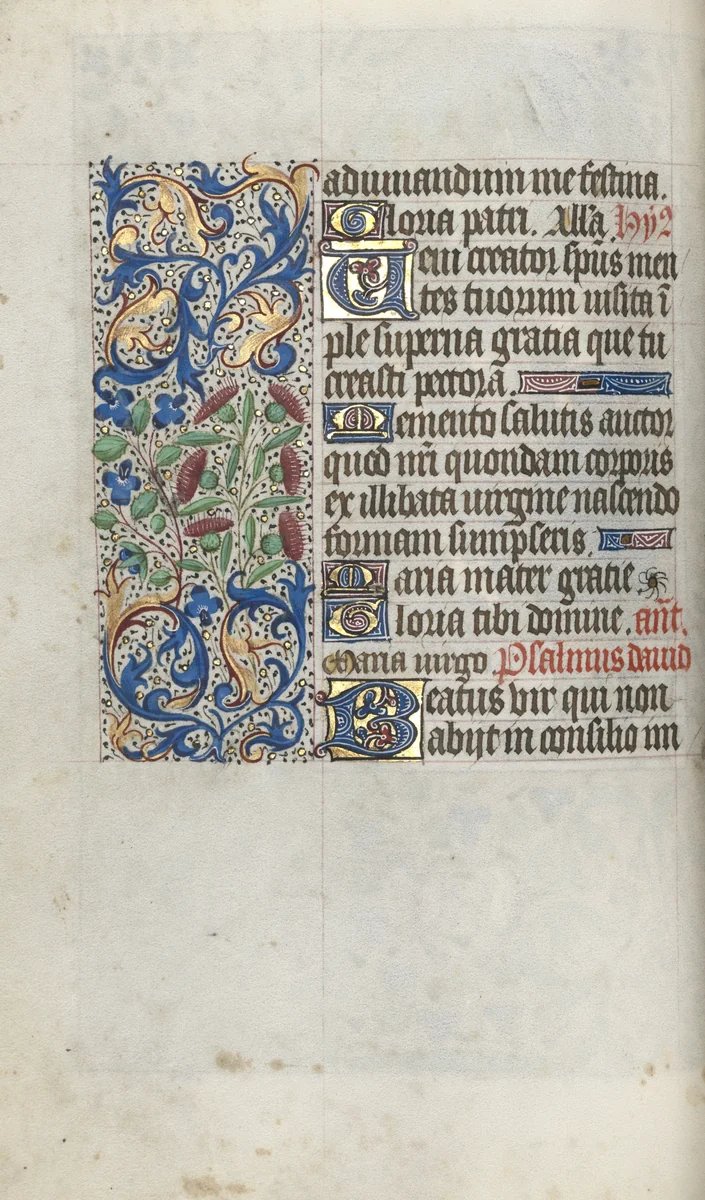 adiuuandum me festina.
Gloria patri. All'a. hy2
Ueni creator sp̄us men
tes tuorum uisita ī
ple superna gratia que tu
creasti pectora.
Memento salutis auctor
quod nr̄i quondam corporis
ex illibata uirgine nascendo
formam sumpseris.
Maria mater gratie
Gloria tibi domine. an̄t.
Maria uirgo Psalmus dauid
Beatus vir qui non
abijt in consilio im